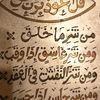 قُلْ أَعُوذُ بِرَبِّ
مِنْ شَرِّ مَا خَلَقَ
وَمِنْ شَرِّ غَاسِقٍ إِذَا وَقَبَ
وَمِنْ شَرِّ النَّفَّثَتِ فِي الْعُقَدِ